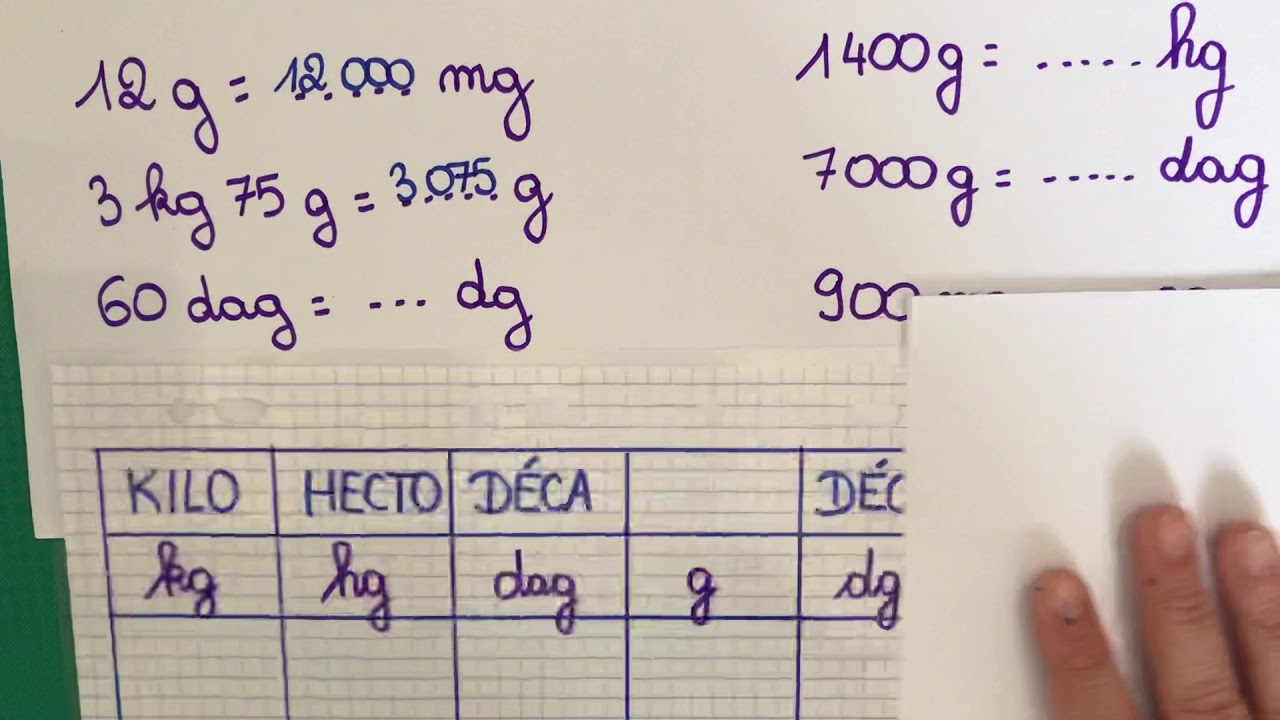 12 g = 12.000 mg
3 kg 75 g = 3.075 g
60 dag = ... dg
1400g = ..... hg
7000g = ..... dag
900
KILO HECTO DÉCA DÉC
kg hg dag g dg